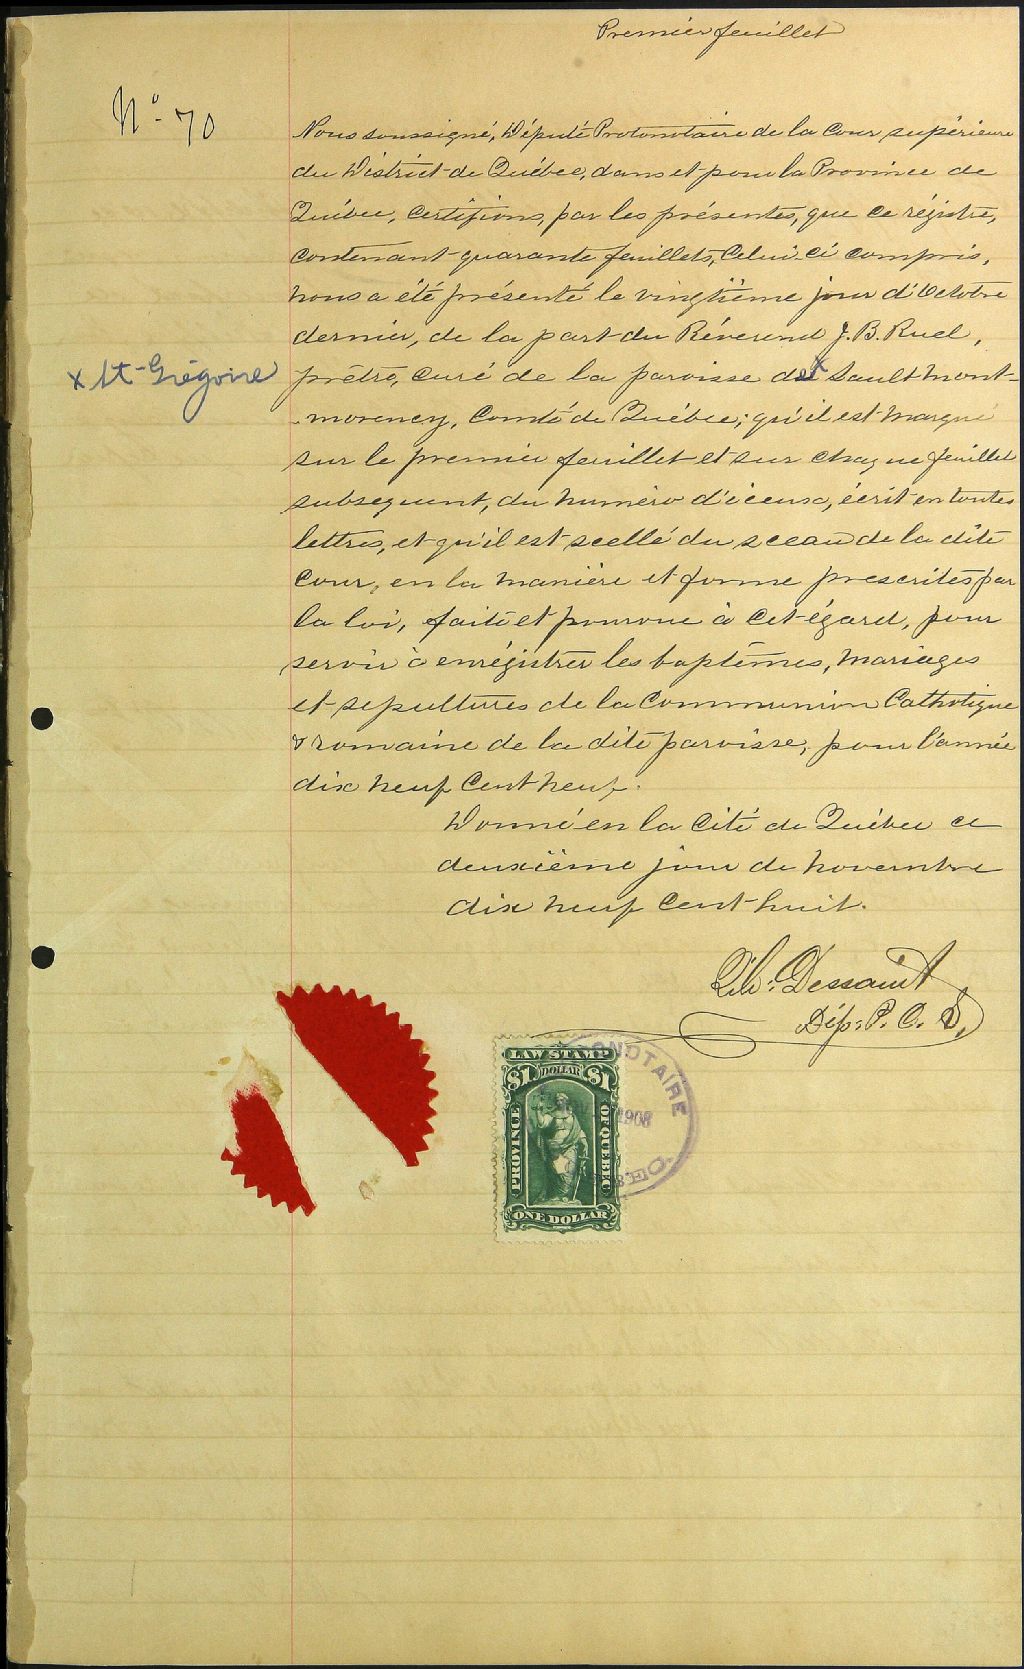 Premier feuillet
No. 70
Nous soussigné, Député Protonotaire de la Cour supérieure
du District de Québec, dans et pour la Province de
Québec, certifions, par les présentes, que ce régistre,
contenant quarante feuillets, celui-ci compris,
nous a été présenté le vingtième jour d'Octobre
dernier, de la part du Révérend J. B. Ruel,
x St-Grégoire
prêtre, curé de la paroisse de x Sault Mont-
morency, Comté de Québec; qu'il est marqué
sur le premier feuillet et sur chaque feuillet
subsequent, du numéro d'iceux, écrit en toutes
lettres, et qu'il est scellé du sceau de la dite
Cour, en la manière et forme prescrites par
la loi, faite et pourvue à cet égard, pour
servir à enrégistrer les baptêmes, mariages
et sepultures de la Communion Catholique
& romaine de la dite paroisse, pour l'année
dix neuf cent neuf.
Donné en la Cité de Québec ce
deuxième jour de novembre
dix neuf cent huit.
Dessaint
Dép. P. C. S.
LAW STAMP
$1 DOLLAR $1
PROVINCE OF QUEBEC
ONE DOLLAR
ONOTAIRE
1908